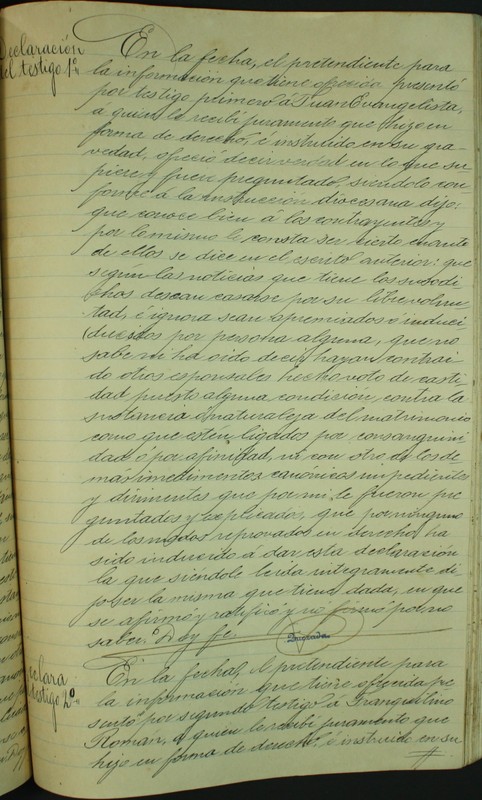 Declaración
del testigo 1º
En la fecha, el pretendiente para
la información que tiene ofrecida presentó
por testigo primero á Juan Evangelista,
a quien le recibí juramento que hizo en
forma de derecho, é instruido en su gra-
vedad, ofreció decir verdad en lo que su-
piere y fuere preguntado, siéndolo con
forme á la instrucción diocesana dijo:
que conoce bien á los contrayentes y
por lo mismo le consta ser cierto cuanto
de ellos se dice en el escrito anterior: que
segun las noticias que tiene los susodi
chos desean casarse por su libre volun-
tad, é ignora sean apremiados ó induci
dos por persona alguna, que no
sabe ni ha oido decir hayan contrai
do otros esponsales hecho voto de casti
dad puesto alguna condicion contra la
sustancia ó naturaleza del matrimonio
como que estén ligados por consanguini
dad o por afinidad, ni con otro de los de
más impedimentos canónicos impedientes
y dirimentes que por mi le fueron pre
guntados y explicados, que por ninguno
de los modos reprovados en derecho ha
sido inducido á dar esta declaración
la que siéndole leida integramente di
jo ser la misma que tiene dada, en que
se afirmó y ratificó y no firmó por no
saber. Doy fe.
Quezada
Declara
testigo 2º
En la fecha, el pretendiente para
la información que tiene ofrecida pre
sentó por segundo testigo á Tranquilino
Román, a quien le recibí juramento que
hizo en forma de derecho, é instruido en su